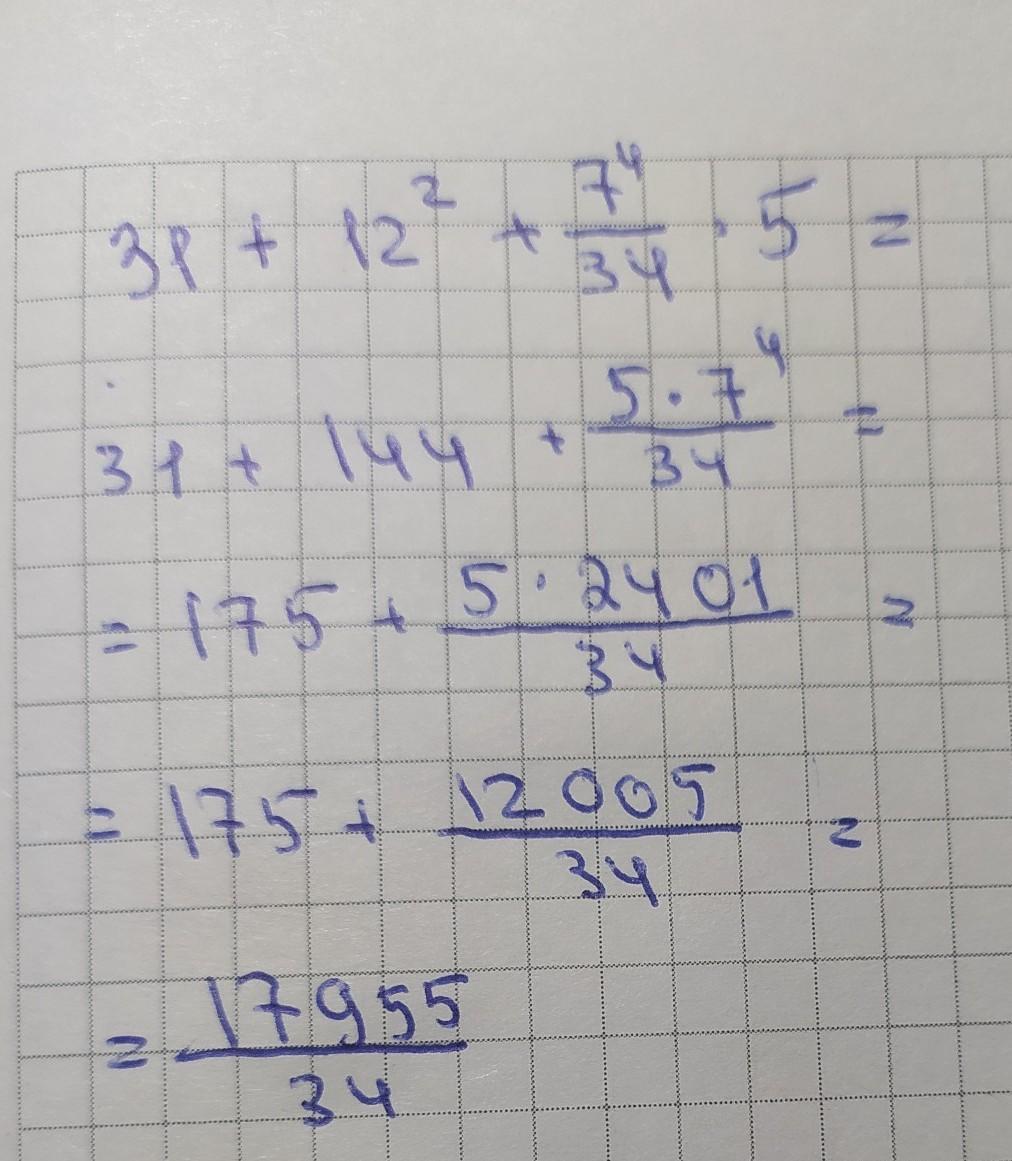 31 + 12² + 7⁴/34 · 5 =
31 + 144 + 5·7⁴/34 =
= 175 + 5·2401/34 =
= 175 + 12005/34 =
= 17955/34